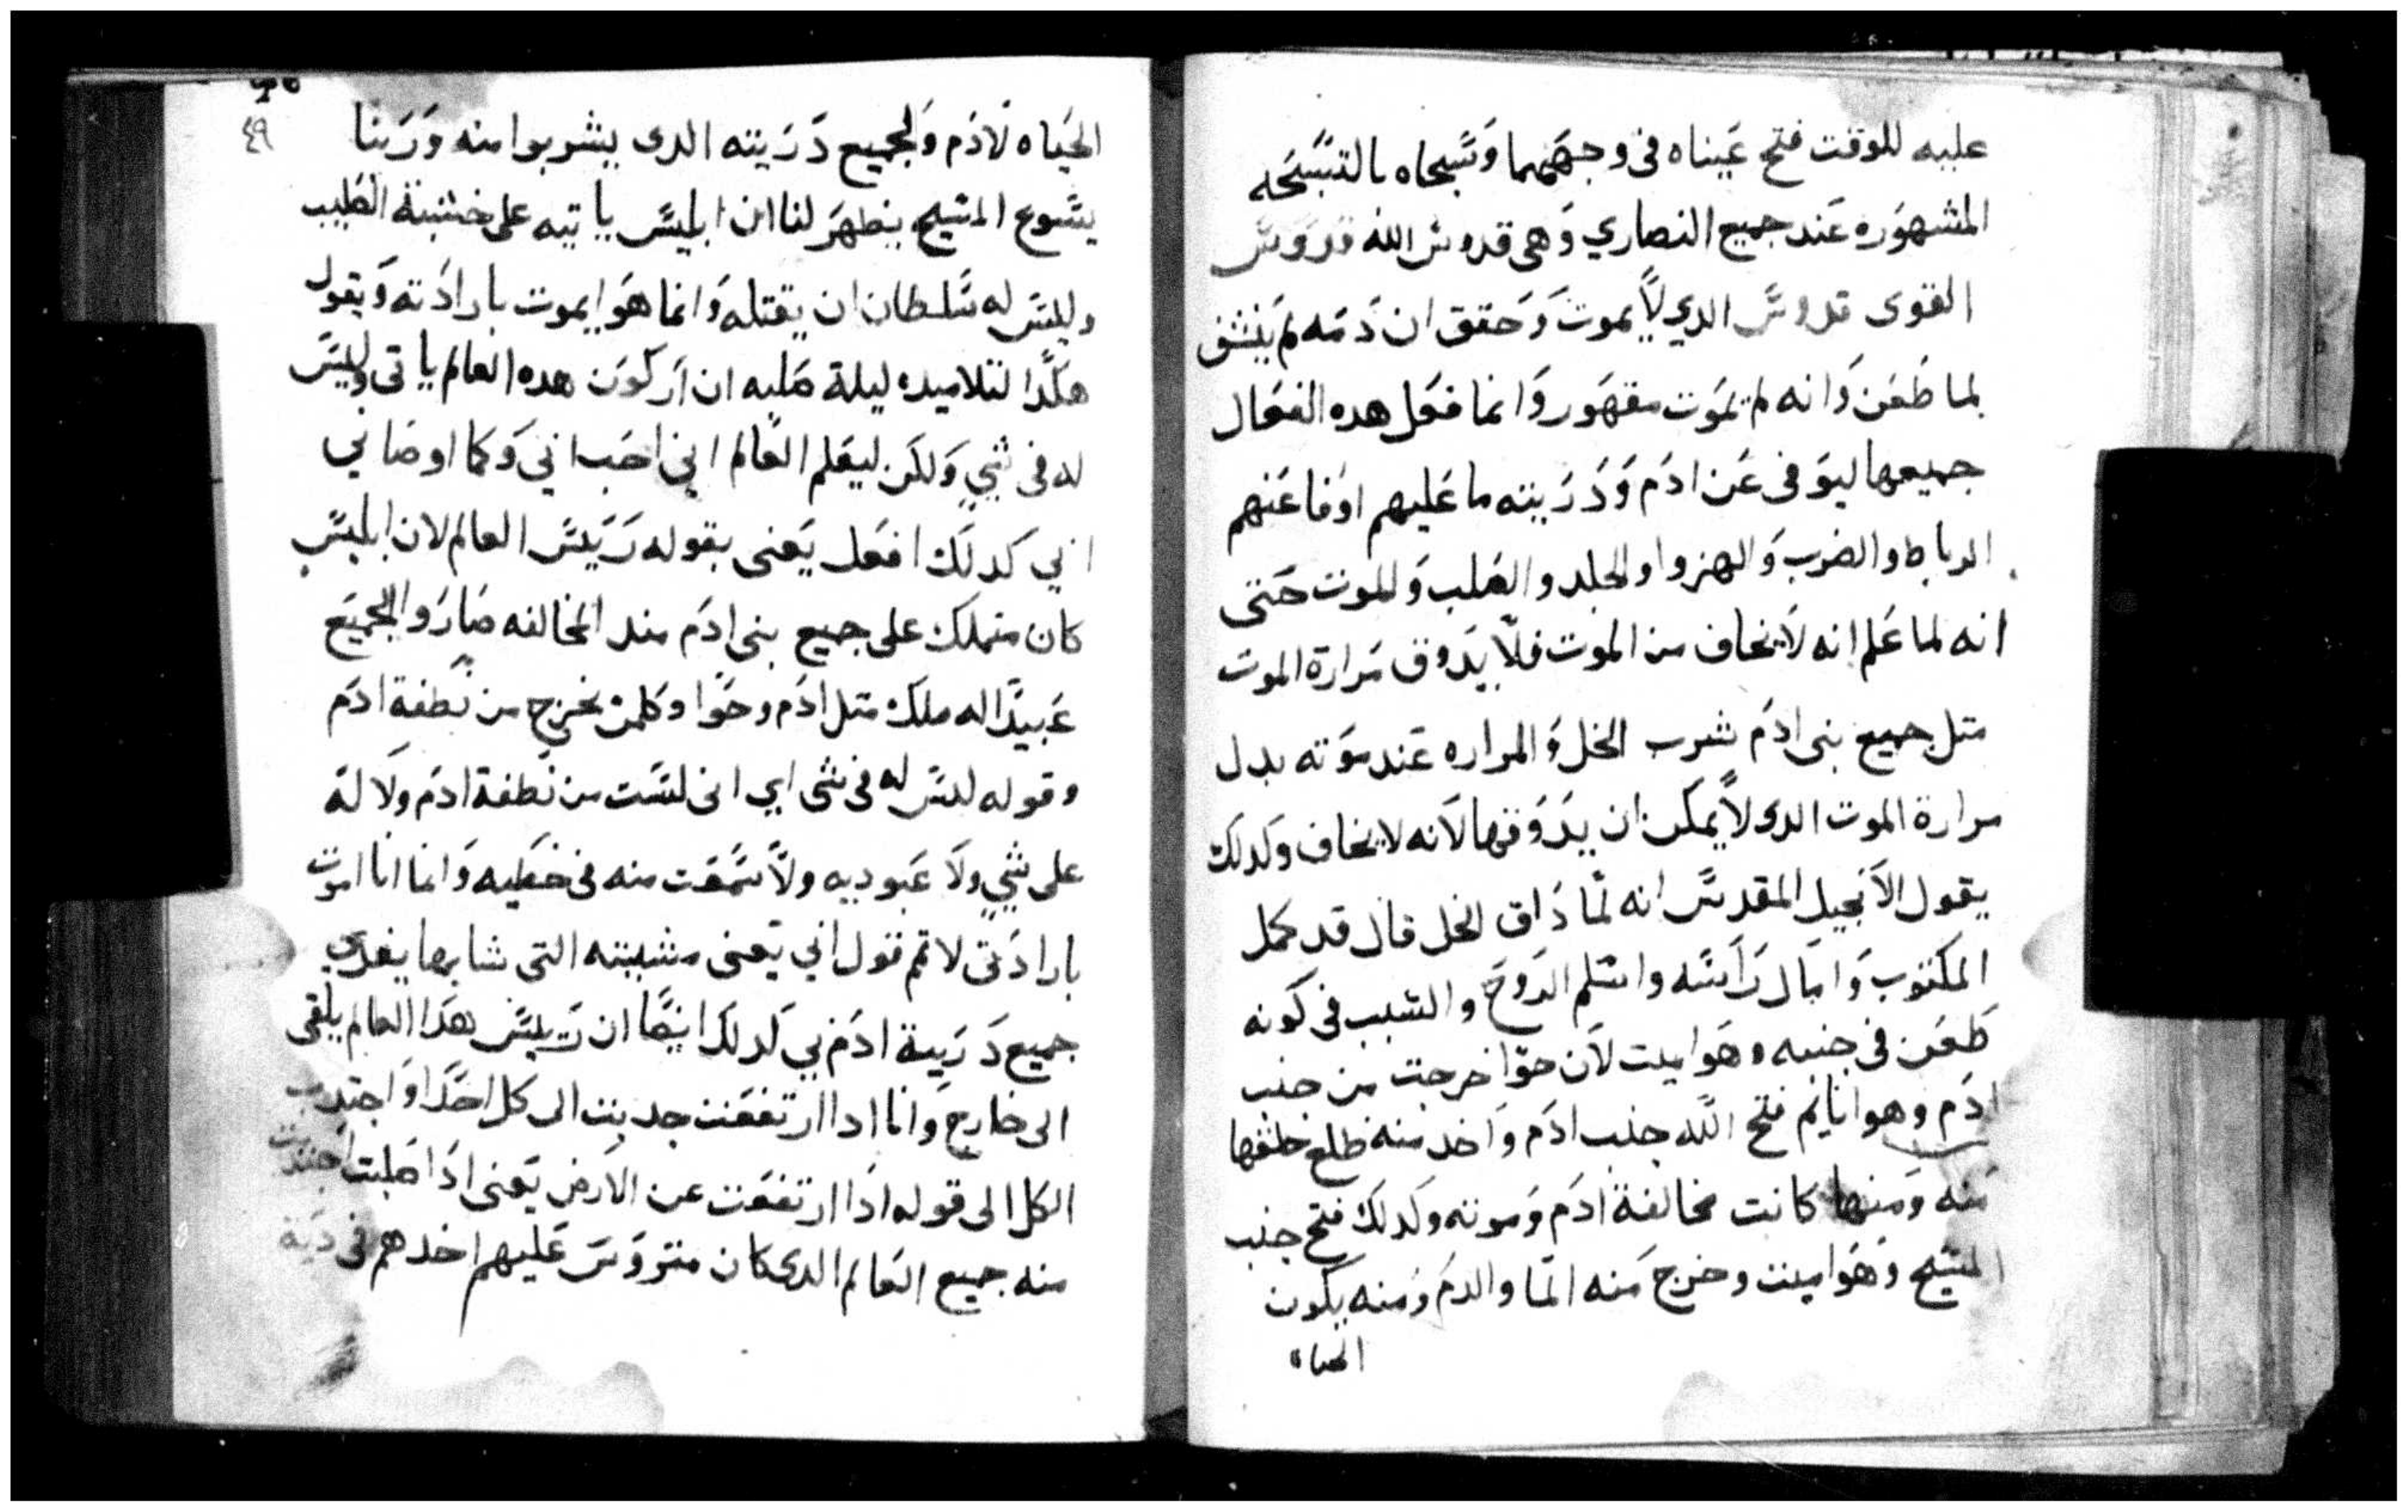 عليه للوقت فتح عيناه فى وجههما وسبحاه بالتسبحه
المشهوره عند جميع النصاري وهى قدوس الله قدوس
القوى قدوس الدي لا يموت وحقق ان دمه لم ينشف
لما طعن وانه لم يموت مقهور وانما فعل هده الفعال
جميعها ليوفى عن ادم ودريته ما عليهم اوفا عنهم
الرباط والضرب والهزوا والجلد والصلب والموت حتى
انه لما علم انه لا يخاف من الموت فلا يدوق مرارة الموت
متل جميع بنى ادم شرب الخل والمراره عند موته بدل
مرارة الموت الدى لا يمكن ان يدوقها لانه لا يخاف وكدلك
يقول الانجيل المقدس انه لما داق الخل قال قد كمل
المكتوب وامال راسه واسلم الروح والسبب فى كونه
طعن فى جنبه وهوا ميت لان حوا خرجت من جنب
ادم وهوا نايم فتح الله جنب ادم واخد منه ضلع خلقها
منه ومنها كانت مخالفة ادم وموته وكدلك فتح جنب
المسيح وهوا ميت وخرج منه الما والدم ومنه يكون
الحياه
٤٩
الحياه لادم ولجميع دريته الدى يشربوا منه وربنا
يسوع المسيح يظهر لنا ان ابليس ياتيه على خشبة الصليب
وليس له سلطان ان يقتله وانما هوا يموت بارادته ويقول
هكدا لتلاميده ليلة صلبه ان اركون هده العالم ياتى وليس
له فى شي ولكن ليعلم العالم اني احب ابي وكما اوصاني
ابي كدلك افعل يعنى بقوله رييس العالم لان ابليس
كان متملك على جميع بنى ادم مند المخالفه صاروا الجميع
عبيدا له ملك متل ادم وحوا وكلمن يخرج من نطفة ادم
وقوله ليس له فى شى اي انى لست من نطفة ادم ولا له
على شي ولا عبوديه ولا سمعت منه فى خطيه وانما انا اموت
بارادتى لاتم قول ابي يعنى مشيته التى شا بها يفدى
جميع درية ادم بي كدلك ايضا ان رييس هدا العالم يلقى
الى خارج وانا ادا ارتفعت جدبت الى كل احدا واجتدب
الكل الى قوله ادا ارتفعت عن الارض يعنى ادا صلبت اجتدبت
منه جميع العالم الدى كان متروس عليهم اخدهم فى دية